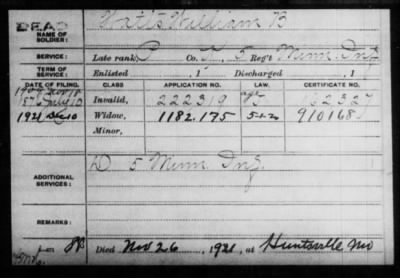 DEAD Watts William B
NAME OF SOLDIER:
SERVICE: Late rank, P Co. 5 Reg't Minn. Inf
TERM OF SERVICE: Enlisted , 1 Discharged , 1
DATE OF FILING. CLASS APPLICATION NO. LAW. CERTIFICATE NO.
Invalid, 222319
1921 Dec 10 Widow, 1182.175 910168
Minor,
ADDITIONAL SERVICES: D 5 Minn Inf.
REMARKS:
Died Nov 26, 1921, at Huntsville Mo